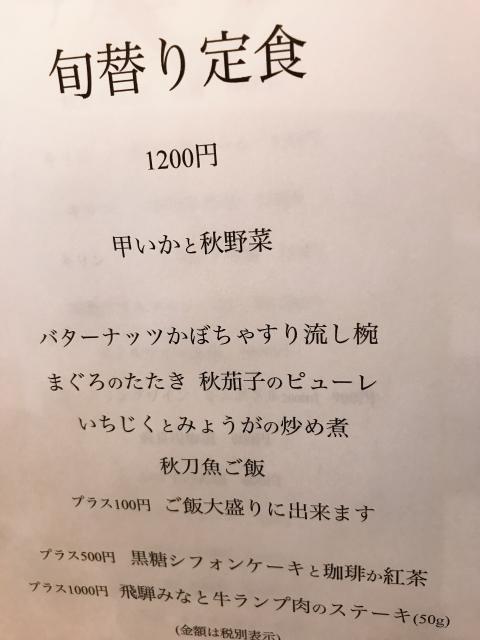 旬替り定食
1200円
甲いかと秋野菜
バターナッツかぼちゃすり流し椀
まぐろのたたき 秋茄子のピューレ
いちじくとみょうがの炒め煮
秋刀魚ご飯
プラス100円 ご飯大盛りに出来ます
プラス500円 黒糖シフォンケーキと珈琲か紅茶
プラス1000円 飛騨みなと牛ランプ肉のステーキ(50g)
(金額は税別表示)